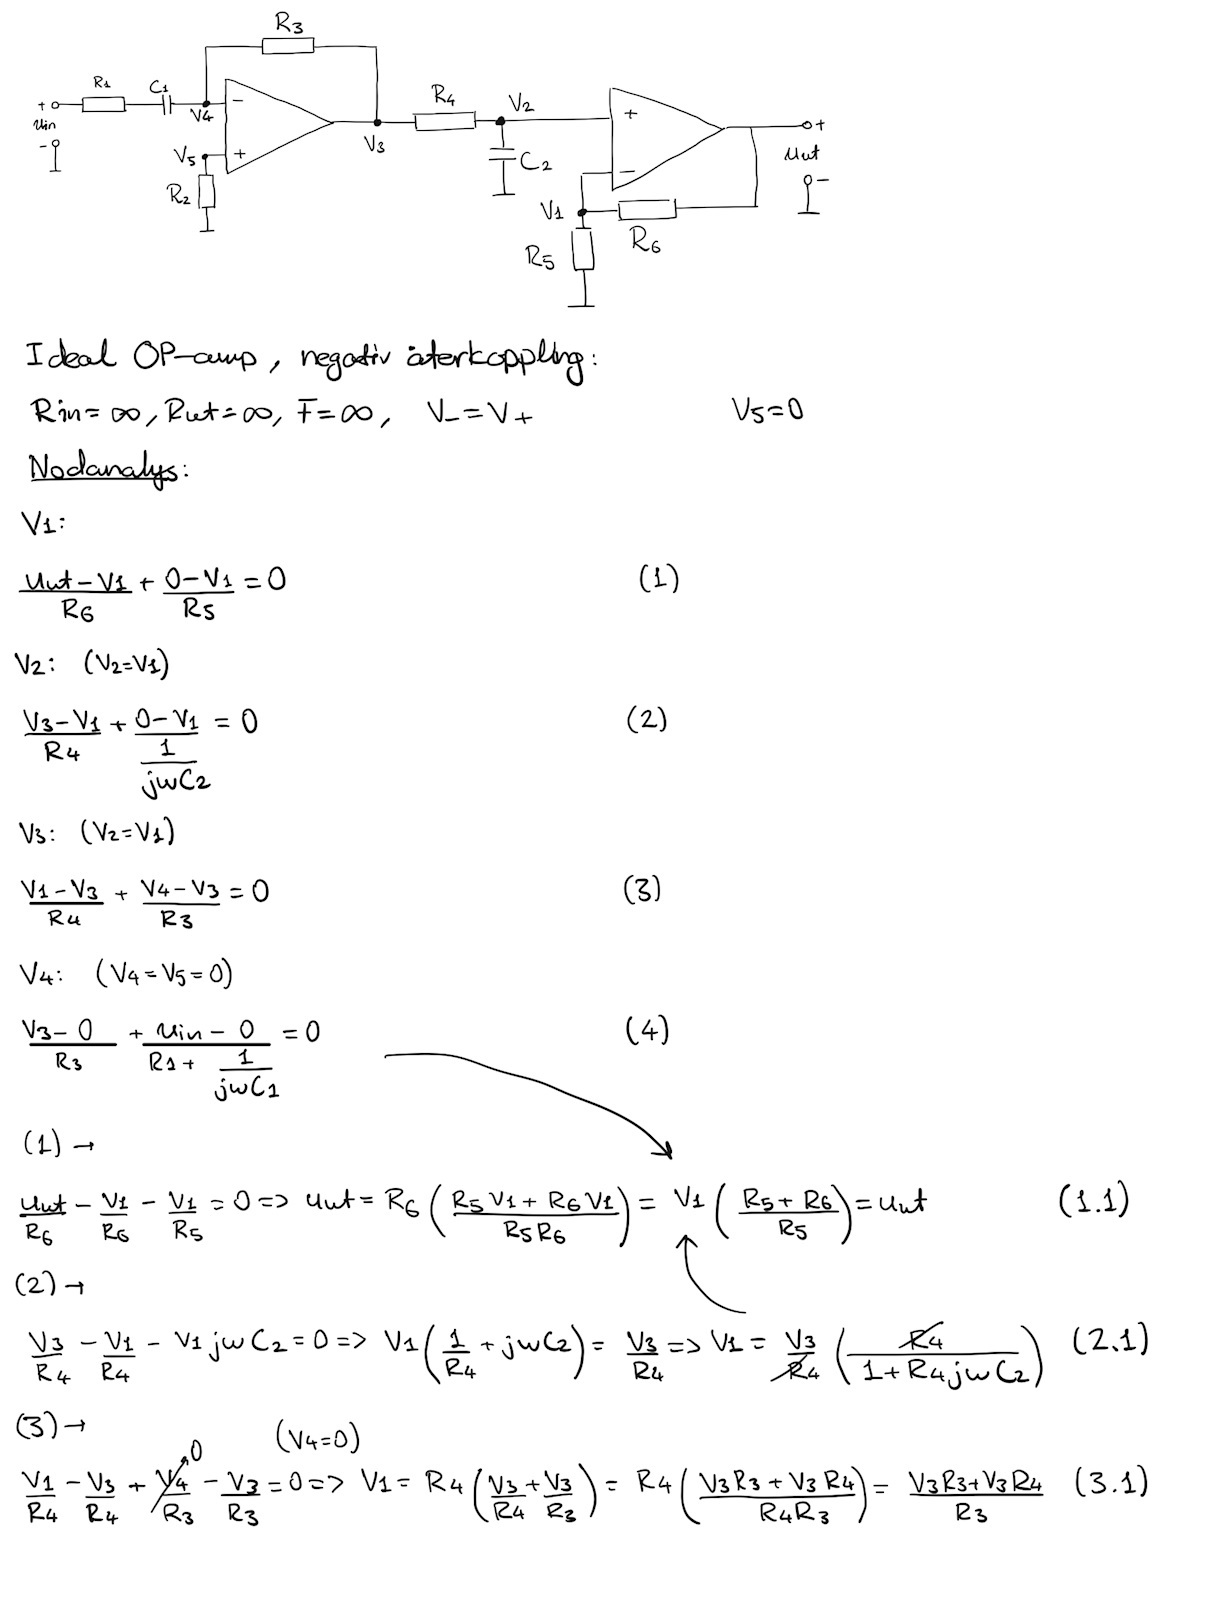 R3
R1 C1 R4 V2
+ - + +
Uin V4 V3 Uut
- V5 + C2 - -
R2 V1 R6
R5
Ideal OP-amp, negativ återkoppling:
Rin=∞, Rut=∞, F=∞, V-=V+ V5=0
Nodanalys:
V1:
(Uut-V1)/R6 + (0-V1)/R5 = 0 (1)
V2: (V2=V1)
(V3-V1)/R4 + (0-V1)/(1/(jωC2)) = 0 (2)
V3: (V2=V1)
(V1-V3)/R4 + (V4-V3)/R3 = 0 (3)
V4: (V4=V5=0)
(V3-0)/R3 + (Uin-0)/(R1+1/(jωC1)) = 0 (4)
(1)→
Uut/R6 - V1/R6 - V1/R5 = 0 => Uut = R6 ((R5V1+R6V1)/(R5R6)) = V1 ((R5+R6)/R5) = Uut (1.1)
(2)→
V3/R4 - V1/R4 - V1jωC2 = 0 => V1 (1/R4 + jωC2) = V3/R4 => V1 = V3/R4 (R4/(1+R4jωC2)) (2.1)
(3)→ (V4=0)
0
V1/R4 - V3/R4 + V4/R3 - V3/R3 = 0 => V1 = R4 (V3/R4 + V3/R3) = R4 ((V3R3+V3R4)/(R4R3)) = (V3R3+V3R4)/R3 (3.1)